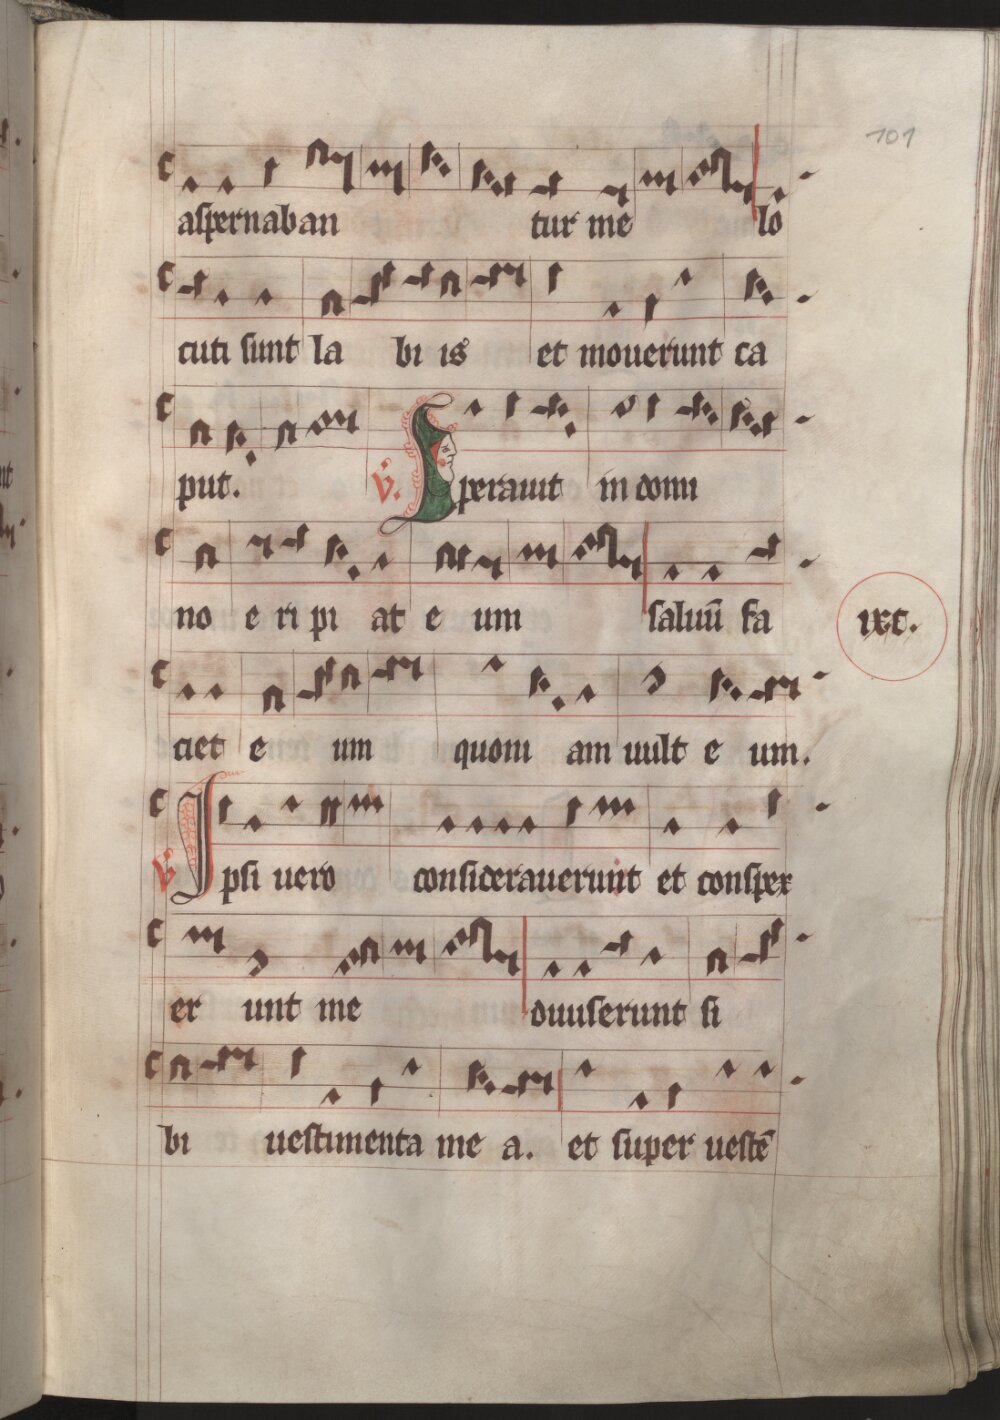 101
aspernaban tur me lo
cuti sunt la bi is et mouerunt ca
put. v. Sperauit in domi
no e ri pi at e um saluū fa
ixc.
ciet e um quoni am uult e um.
v Ipsi uero considerauerunt et conspex
er unt me diuiserunt si
bi uestimenta me a. et super uestē